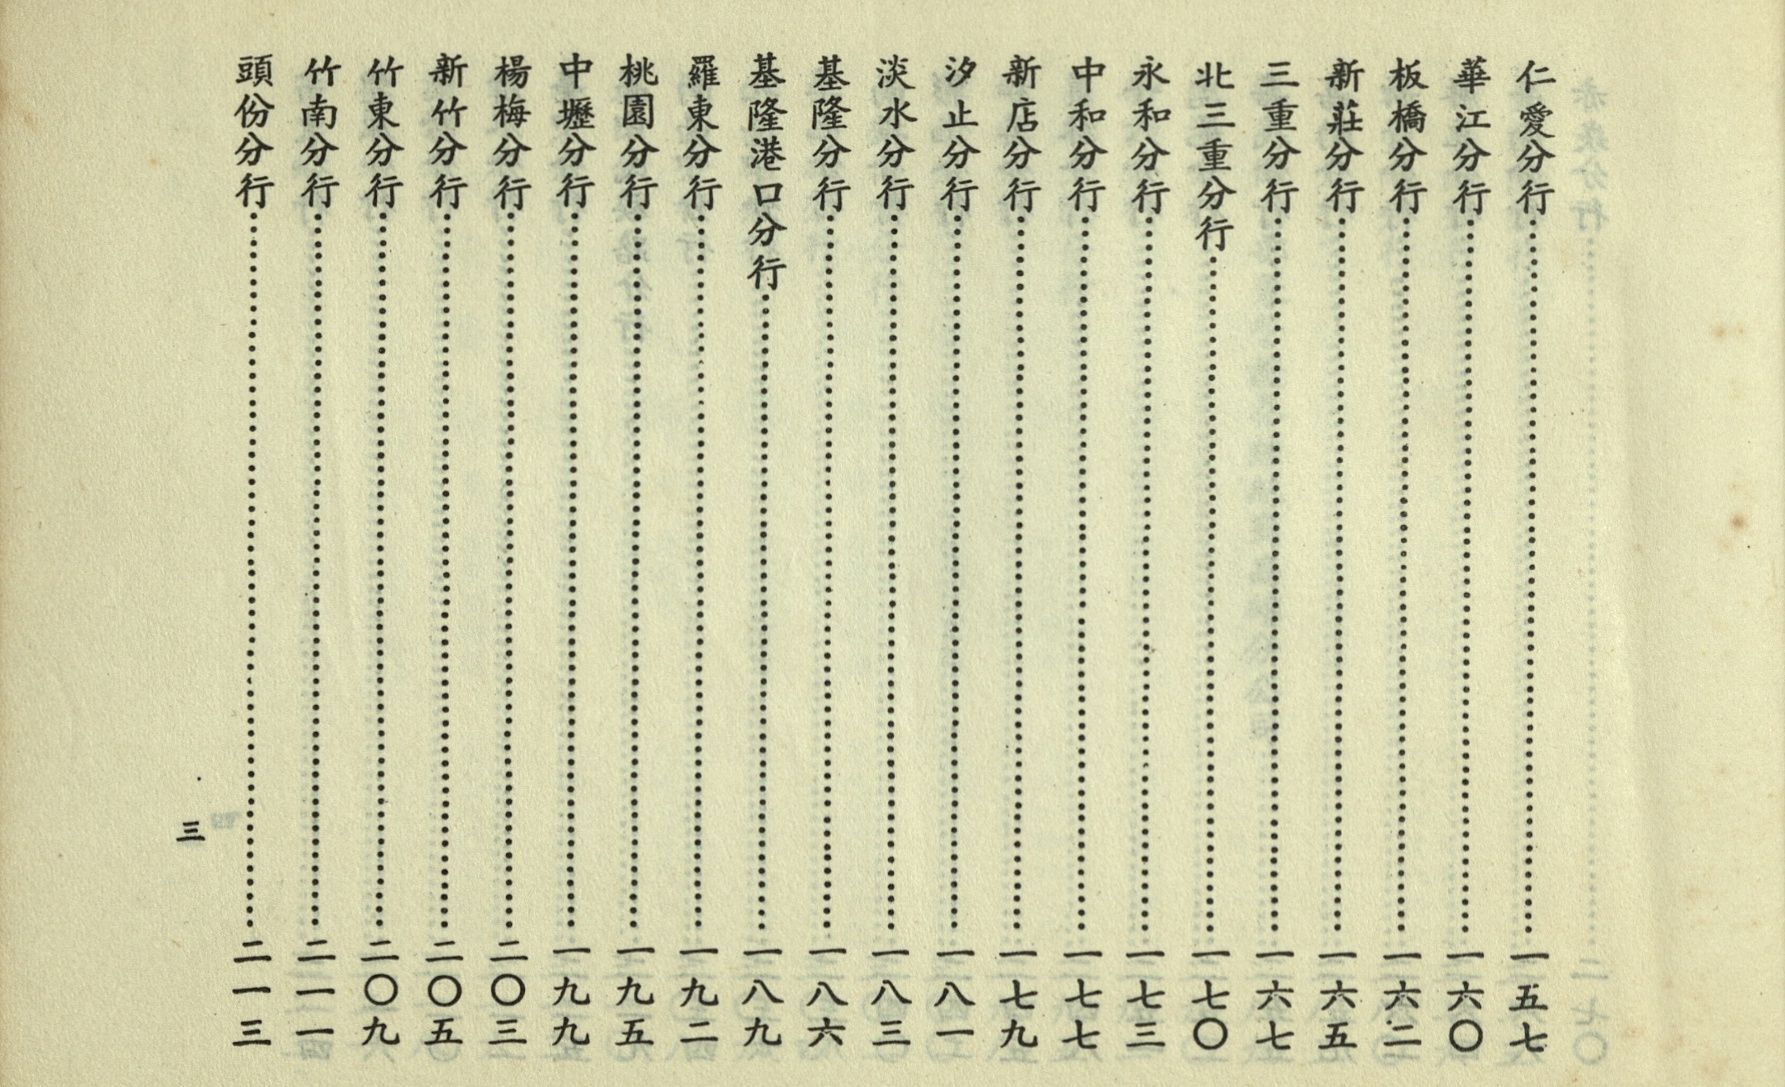 仁愛分行……一五七
華江分行……一六〇
板橋分行……一六二
新莊分行……一六五
三重分行……一六七
北三重分行……一七〇
永和分行……一七三
中和分行……一七七
新店分行……一七九
汐止分行……一八一
淡水分行……一八三
基隆分行……一八六
基隆港口分行……一八九
羅東分行……一九二
桃園分行……一九五
中壢分行……一九九
楊梅分行……二〇三
新竹分行……二〇五
竹東分行……二〇九
竹南分行……二一一
頭份分行……二一三
三